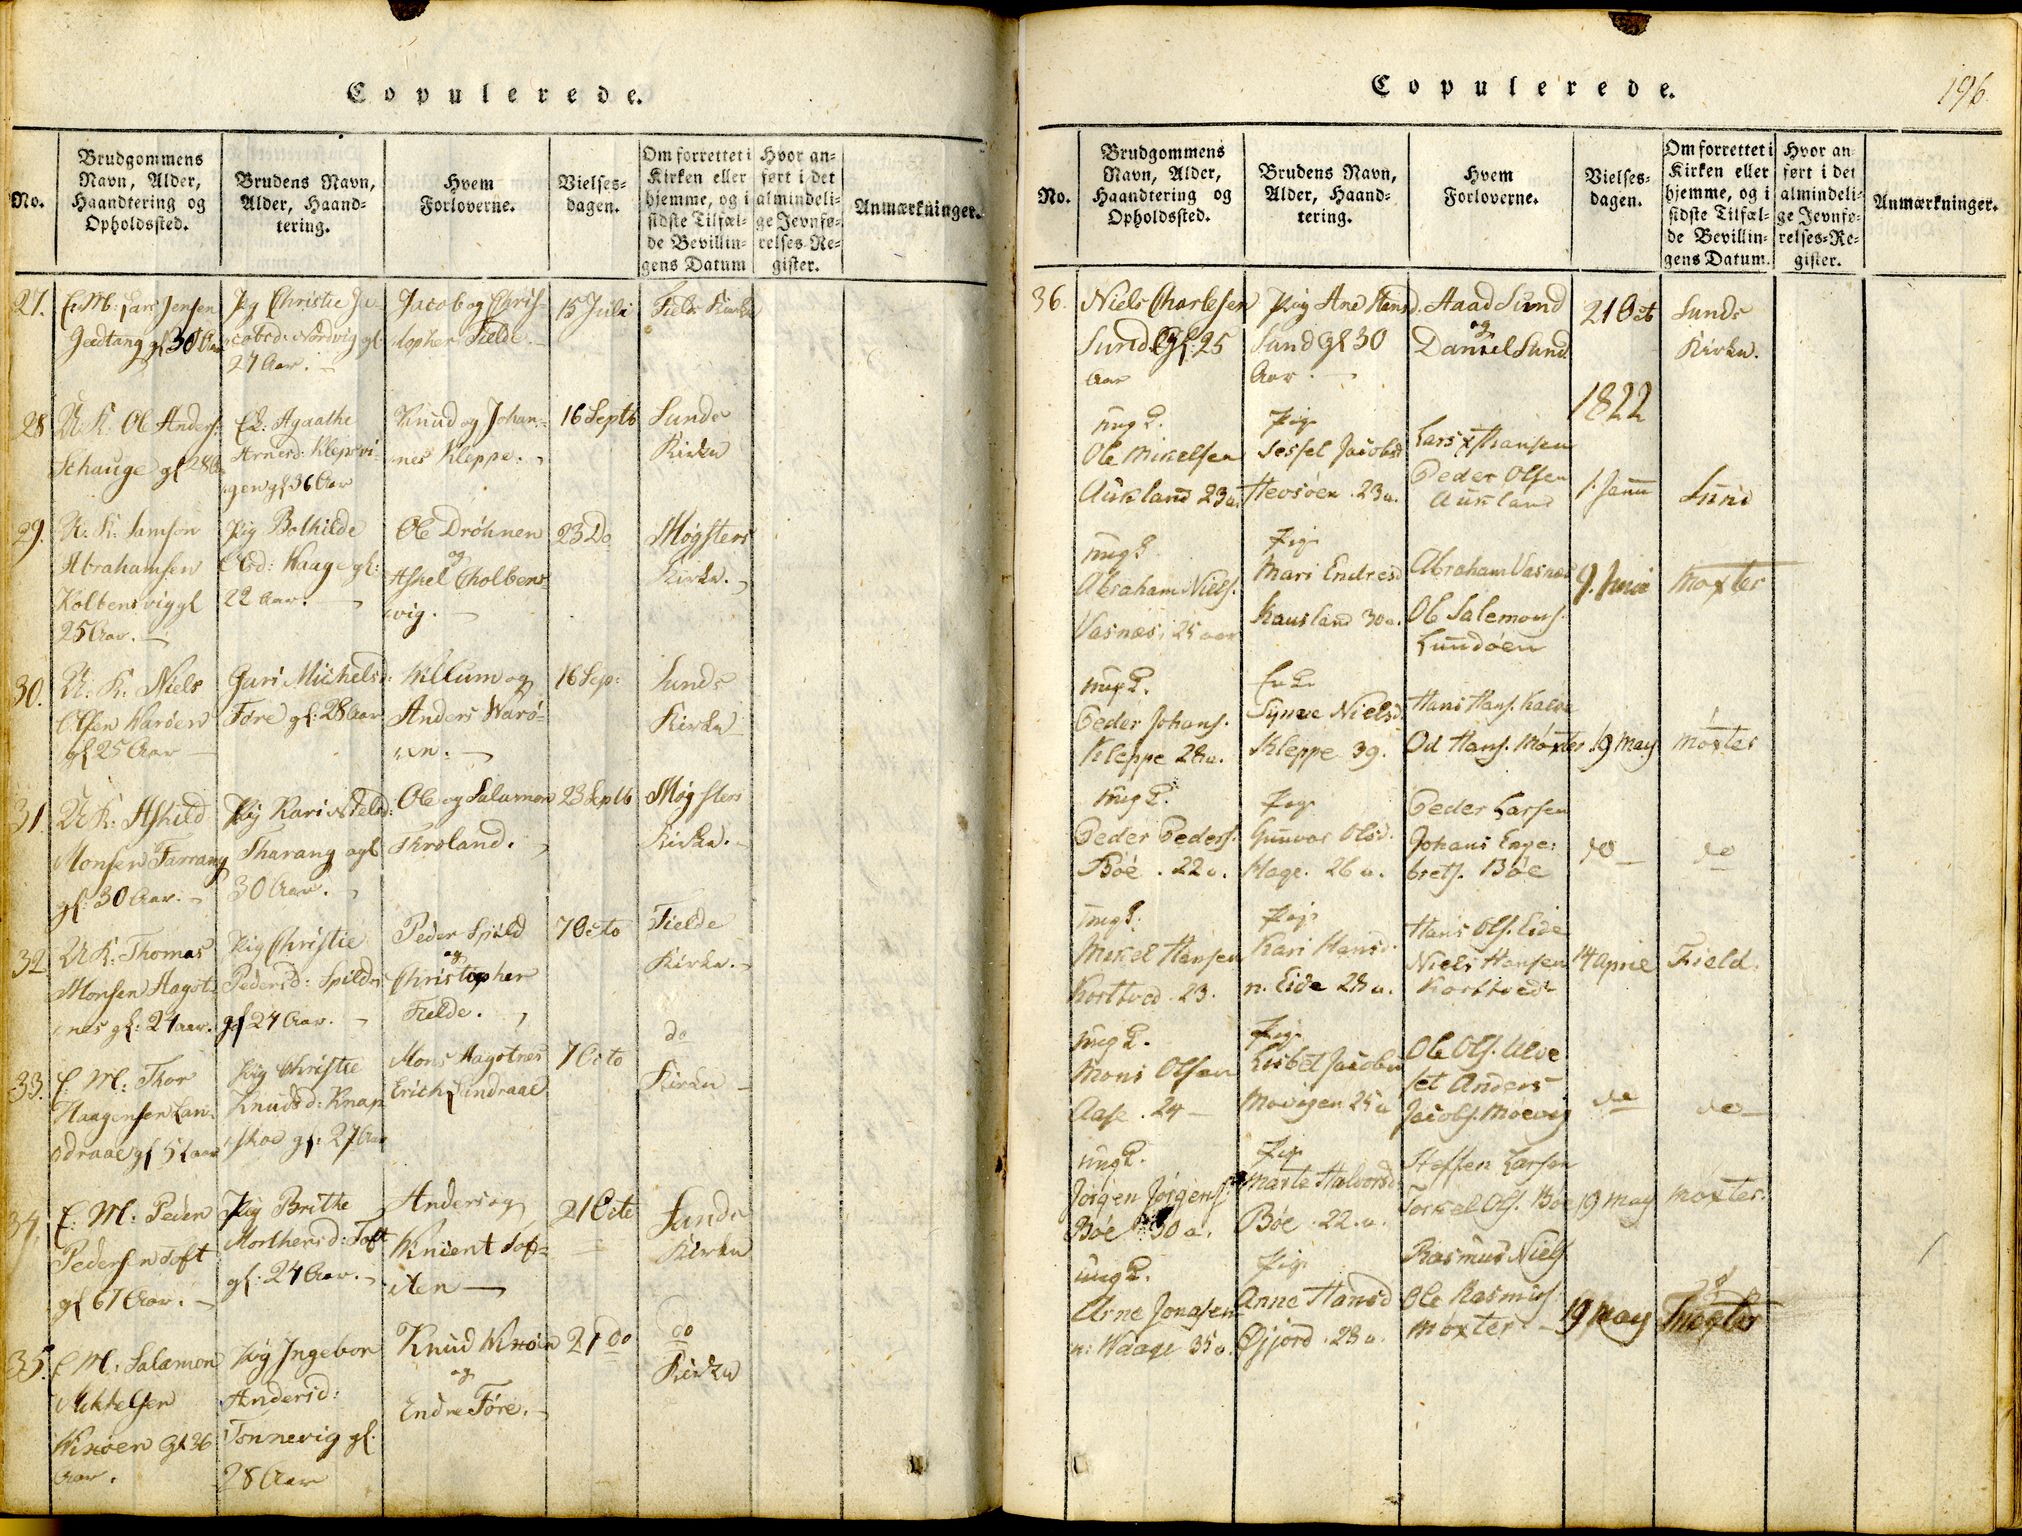 Copulerede.
No.
Brudgommens
Navn, Alder,
Haandtering og
Opholdssted.
Brudens Navn,
Alder, Haand-
tering.
Hvem
Forloverne.
Vielses-
dagen.
Om forrettet i
Kirken eller
hjemme, og i
sidste Tilfæl-
de Bevillin-
gens Datum
Hvor an-
ført i det
almindeli-
ge Jevnfø-
relses-Re-
gister.
Anmærkninger.
27.
E: M: Lars Jensen
gl 30 Aar
Pig Christie Ja-
cobsd: Nordvig gl:
27 Aar.
Jacob og Chris-
topher Fielde.
15 Juli
Fields Kirke
28
U: K: Ole Anders:
Schauge gl 28
E: Agaathe
Arnesd: Klepsvi-
gen gl 36 Aar
Knud og Johan-
nes Kleppe.
16 Septb
Sunds
Kirke
29.
U: K: Samson
Abrahamsen
Kolbensvig gl
25 Aar.
Pig Bolhilde
Olsd: Waage gl:
22 Aar.
Ole Dröhnen
og
Askel Cholbens
vig.
23 Do
Møgsters
Kirke.
30.
U: K: Niels
Olsen Waröen
gl 25 Aar
Guri Michelsd:
Fore gl: 28 Aar
Willum og
Anders Warö-
en.
16 Sep:
Sunds
Kirke
31.
U K: Askild
Monsen Tarrang
gl: 30 Aar.
Pig Kari Nielsd:
Tharang gl
30 Aar.
Ole og Salamon
Throland.
23 Septb
Møgsters
Kirke.
32
U K: Thomas
Monsen Aagot-
nes gl: 24 aar.
Pig Christie
Pedersd: Spilde
gl 24 Aar.
Peder Spild
og
Christopher
Fielde.
7 Octo
Fielde
Kirke.
33.
E: M: Thor
Haagensen Lan-
draae gl 52 aar
Pig Christie
Knudsd: Knap-
skoe gl: 27 Aar
Mons Aagotnes
Erich Landraae
7 Octo
do
Kirke
34.
E: M: Peder
Pedersen Toft
gl 67 Aar.
Pig Brithe
Morthensd: Toft
gl: 24 Aar.
Anders og
Wnient Tof-
ten
21 Octo
Sunds
Kirke
35.
E M: Salamon
Mikkelsen
Wixöen gl 36
Aar.
Pig Ingebor
Andersd:
Tonnevig gl.
28 Aar
Knud Wixöen
og
Endre Före.
21 do
do
Kirke
Copulerede.
196.
No.
Brudgommens
Navn, Alder,
Haandtering og
Opholdssted.
Brudens Navn,
Alder, Haand-
tering.
Hvem
Forloverne.
Vielses-
dagen.
Om forrettet i
Kirken eller
hjemme, og i
sidste Tilfæl-
de Bevillin-
gens Datum.
Hvor an-
ført i det
almindeli-
ge Jevnfø-
relses-Re-
gister.
Anmærkninger.
36.
Niels Charlesen
Sund gl: 25
Aar
Pig Ane Hansd.
Sund gl 30
Aar.
Aad Sund
og
Daniel Sund
21 Oct
Sunds
Kirke.
1822
ung K.
Ole Mikelsen
Aukland 23 a.
Pige
Sessel Jacobsd
Hevröen. 23 a.
Lars Hansen
Peder Olsen
Aukland
1. Janu
Sund
ung K.
Abraham Niels.
Vasnæs, 25 aar
Pige
Mari Endresd
Hausland 30 a.
Abraham Vasnæs
Ole Salemons.
Lundöen
9. Juni
Moxter
ung K.
Peder Johans.
Kleppe 28 a.
Enke
Synve Nielsd.
Kleppe 39.
Hans Hans. Kalve
Od Hans. Möxter
19 May
Moxter
ung K.
Peder Peders.
Böe. 22 a.
Pige
Gunvor Olsd.
Hage. 26 a.
Peder Larsen
Johans Enge:
brets. Böe
do
do
ung K.
Mikel Hansen
Korttved. 23.
Pige
Kari Hansd.
n. Eide 28 a.
Hans Ols. Eide
Niels Hansen
Korttved
14 April
Field.
ung K.
Mons Olsen
Aase. 24
Pige
Lisbet Jacobsd
Movigen. 25 a
Ole Ols. Alve
set Anders
Jacobs. Moevig
do
do
ung K.
Jörgen Jörgens.
Böe 30 a.
Pige
Marte Halvorsd
Böe. 22. a.
Steffen Larsen
Torkel Ols. Böe
19 May
Moxter.
ung K.
Arne Jonasen
n: Waage 35 a.
Pige
Anne Hansd
Øjjord. 28 a.
Rasmus Niels
Ole Rasmus.
Moxter
19 May